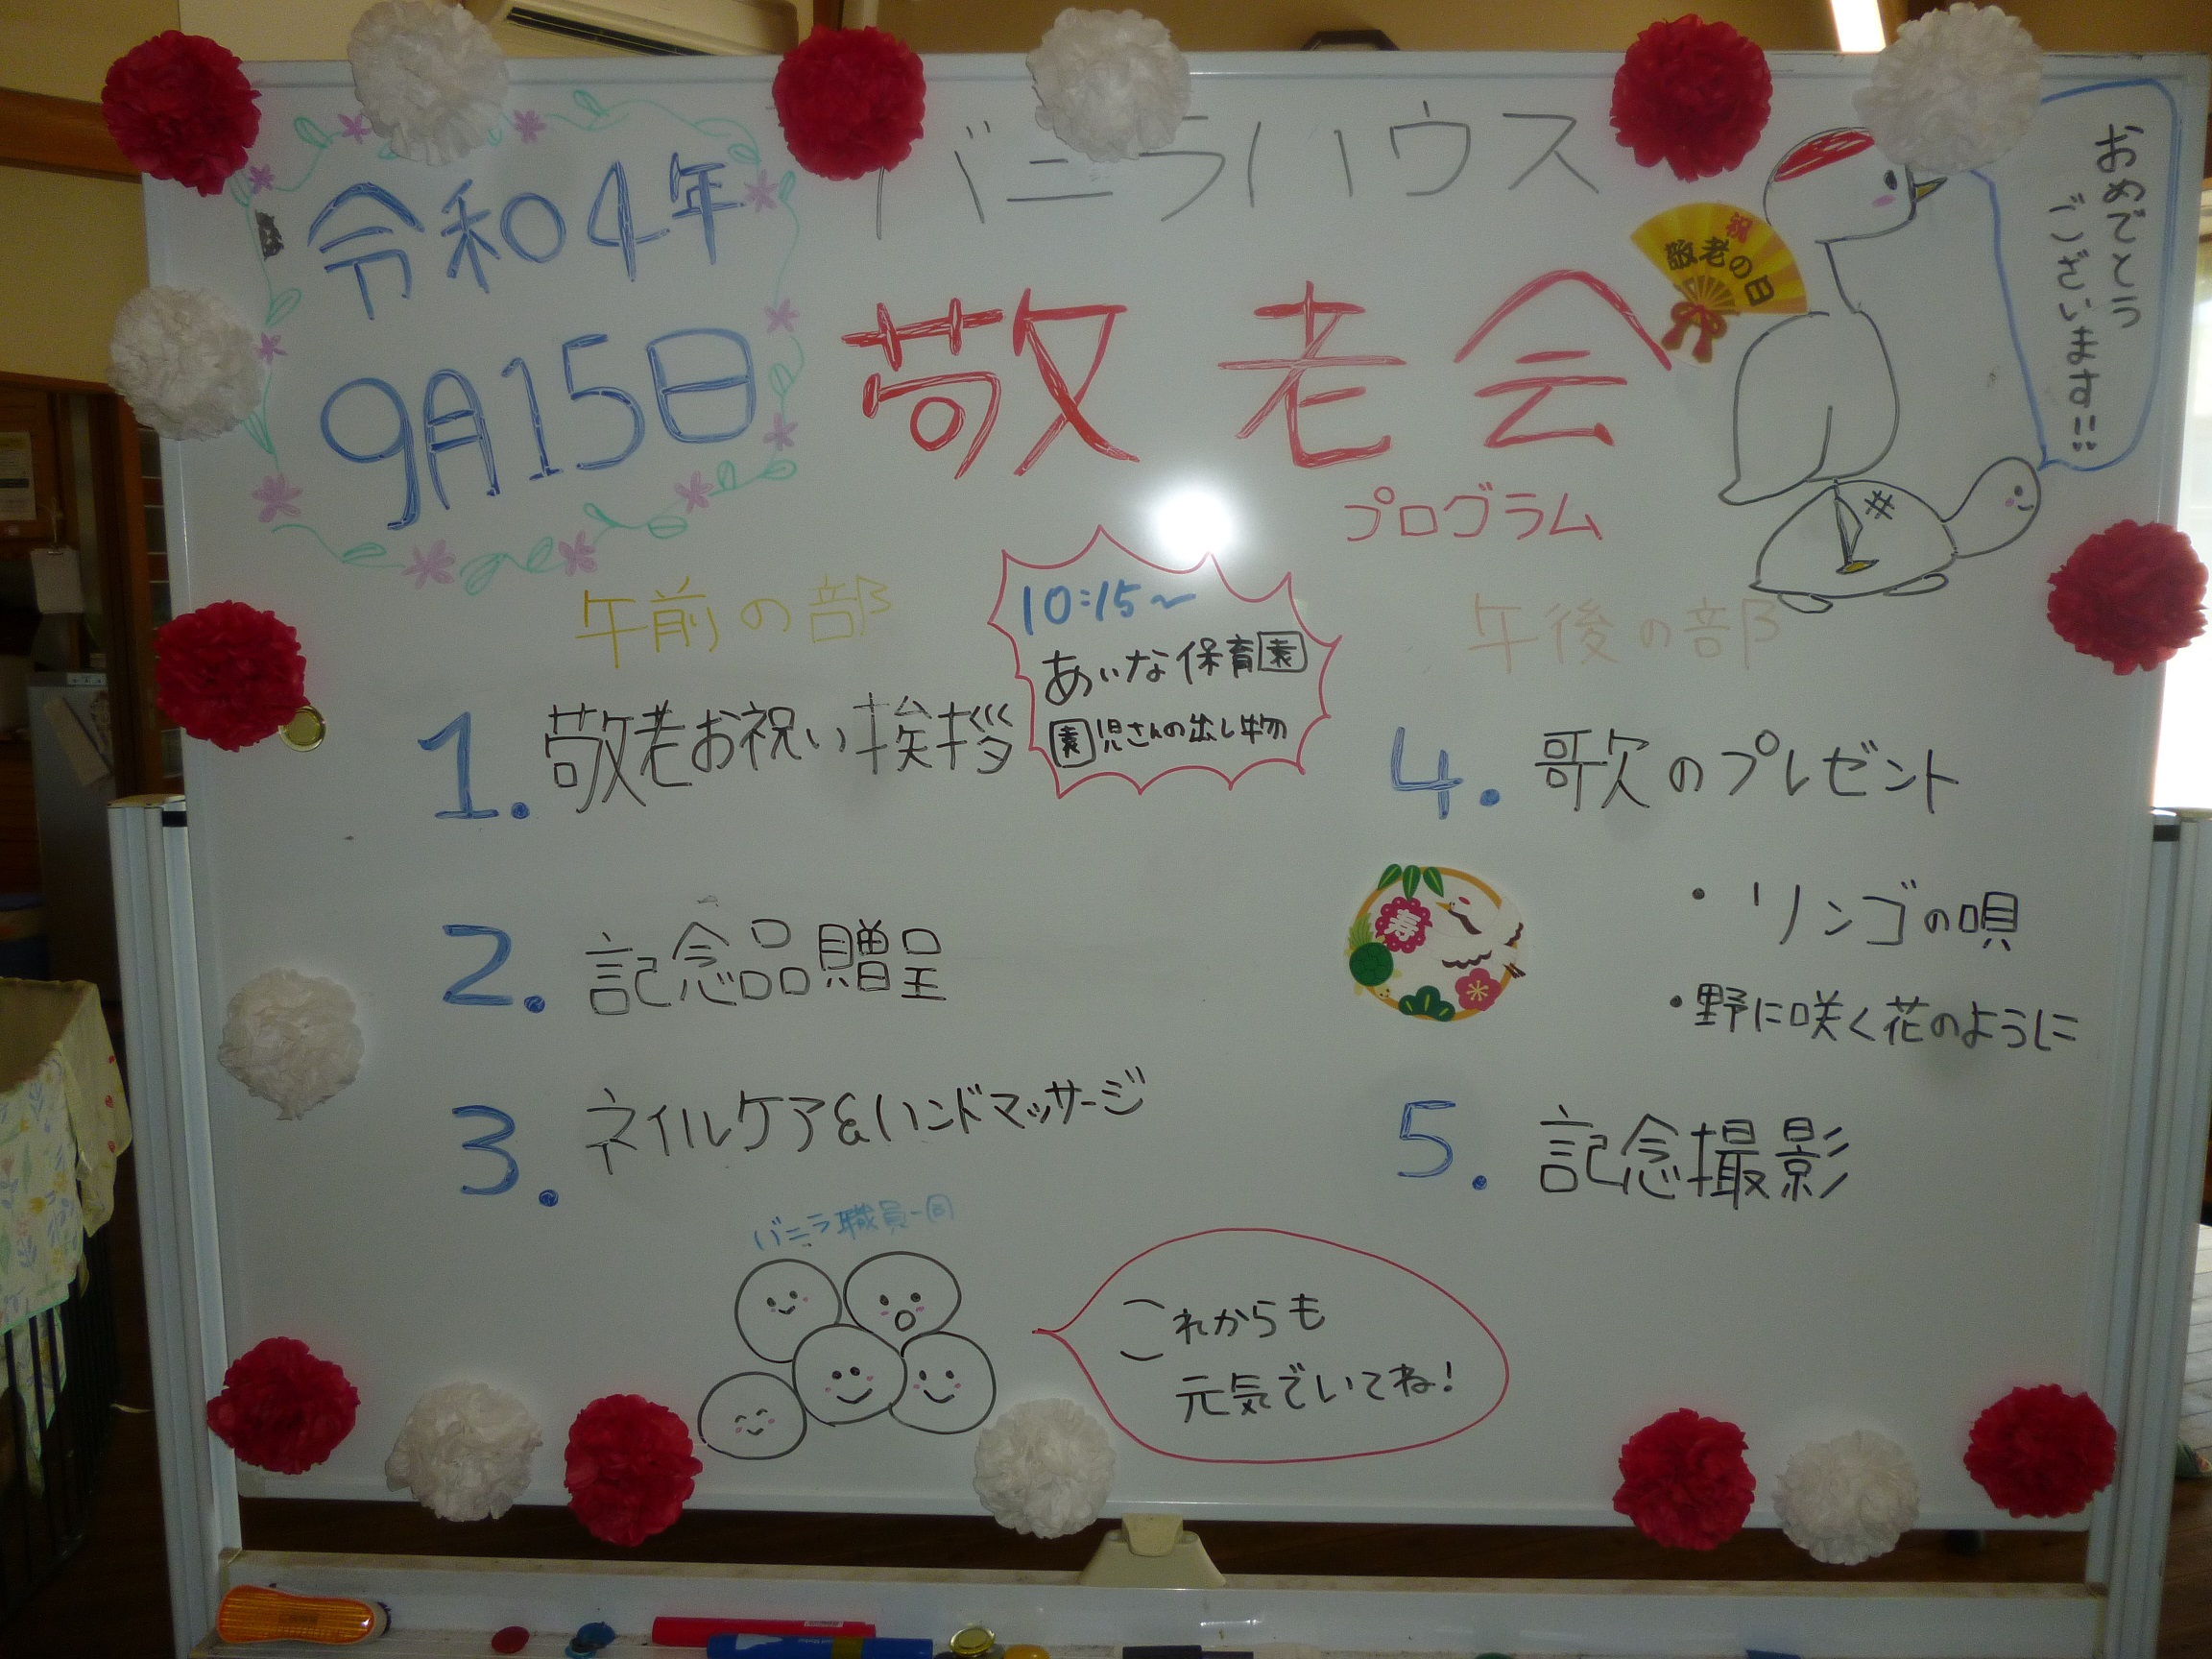 令和4年
9月15日
バニラハウス
敬老会
プログラム
祝
敬老の日
おめでとう
ございます!!
午前の部
1. 敬老お祝い挨拶
10:15〜
あいな保育園
園児さんの出し物
2. 記念品贈呈
3. ネイルケア&ハンドマッサージ
午後の部
4. 歌のプレゼント
寿
・リンゴの唄
・野に咲く花のように
5. 記念撮影
バニラ職員一同
これからも
元気でいてね!